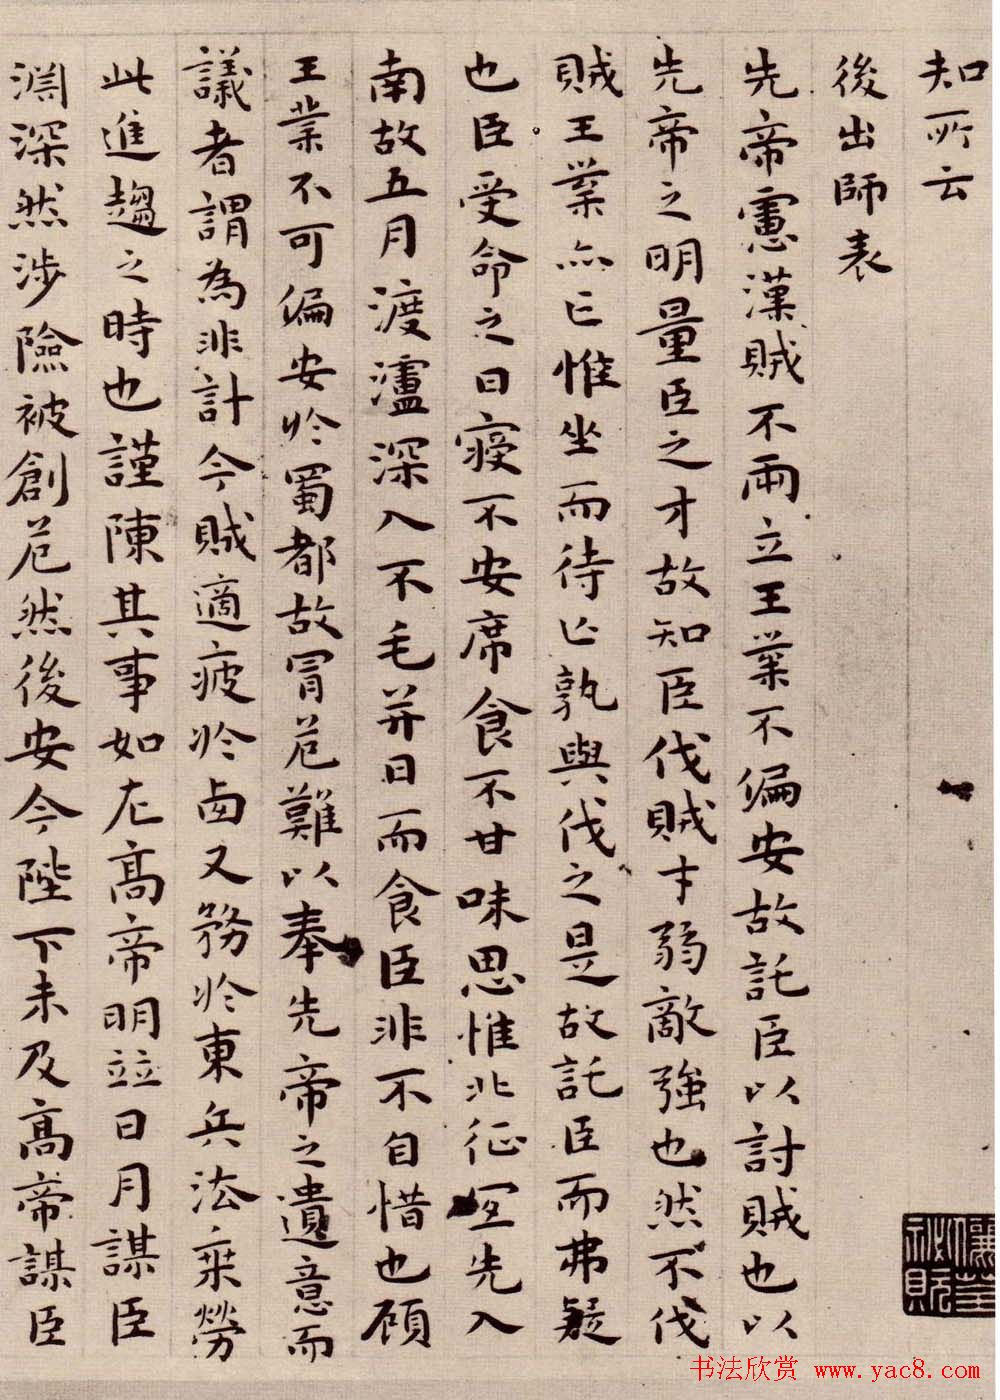 知所云
後出師表
先帝慮漢賊不兩立王業不偏安故託臣以討賊也以
先帝之明量臣之才故知臣伐賊才弱敵強也然不伐
賊王業亦亡惟坐而待亡孰與伐之是故託臣而弗疑
也臣受命之日寝不安席食不甘味思惟北征宜先入
南故五月渡瀘深入不毛并日而食臣非不自惜也顧
王業不可偏安於蜀都故冒危難以奉先帝之遺意而
議者謂為非計今賊適疲於西又務於東兵法乘勞
此進趨之時也謹陳其事如左高帝明並日月謀臣
淵深然涉險被創危然後安今陛下未及高帝謀臣
书法欣赏 www.yac8.com